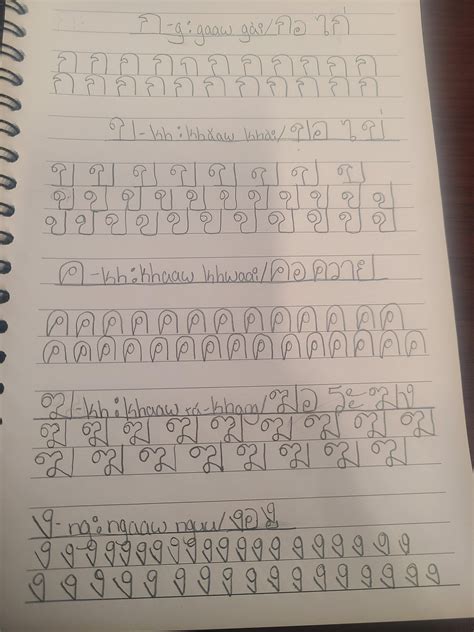 ก-g:gaaw gài/กอ ไก่
ก ก ก ก ก ก ก ก ก ก ก
ก ก ก ก ก ก ก ก ก ก ก
ข-kh:khǎaw khài/ขอ ไข่
ข ข ข ข ข ข ข
ข ข ข ข ข ข ข ข ข ข
ข ข ข ข ข ข ข ข ข ข
ค-kh:khaaw khwaai/คอ ควาย
ค ค ค ค ค ค ค ค ค ค ค ค ค
ค ค ค ค ค ค ค ค ค ค ค ค ค ค
ฆ-kh:khaaw rá-khang/ฆอ ระฆัง
ฆ ฆ ฆ ฆ ฆ ฆ ฆ ฆ ฆ
ฆ ฆ ฆ ฆ ฆ ฆ ฆ ฆ
ง-ng:ngaaw nguu/งอ งู
ง ง ง ง ง ง ง ง ง ง ง ง ง ง ง ง ง ง
ง ง ง ง ง ง ง ง ง ง ง ง ง ง ง ง